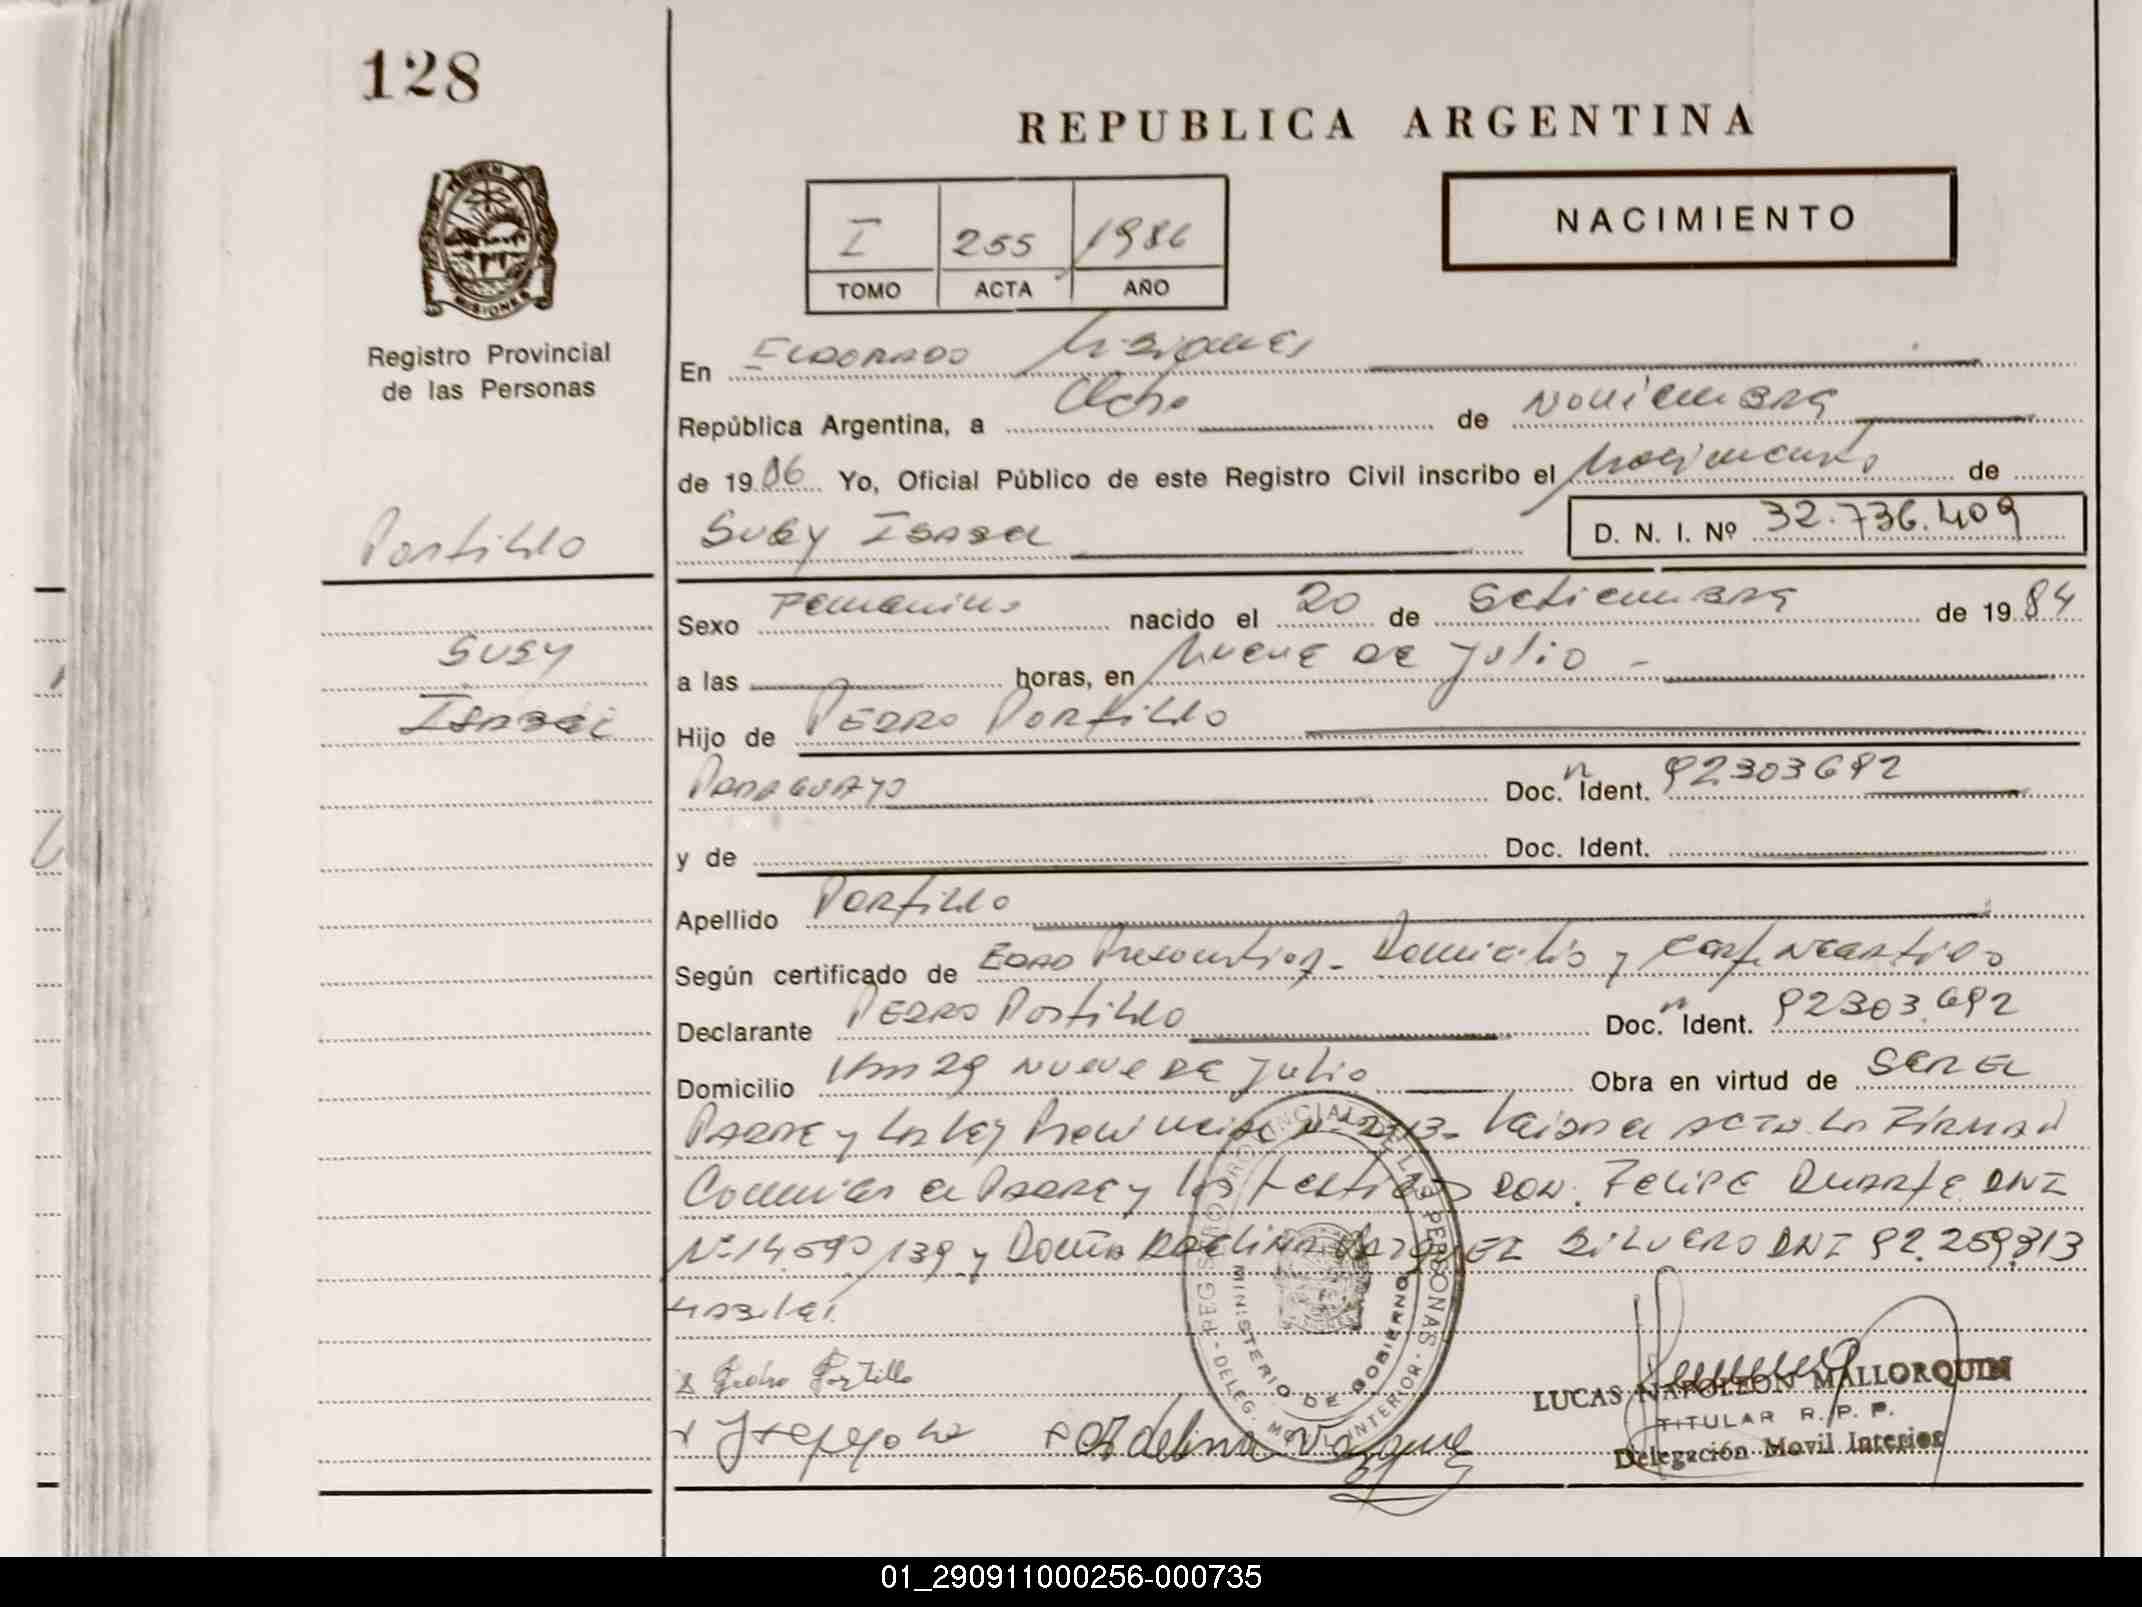 128
REPUBLICA ARGENTINA
NACIMIENTO
I 255 1986
TOMO ACTA AÑO
MISIONES
Registro Provincial
de las Personas
En Eldorado Misiones
República Argentina, a Ocho de Noviembre
de 1986 Yo, Oficial Público de este Registro Civil inscribo el Nacimiento de
Portillo
Susy Isabel D. N. I. Nº 32.736.409
Sexo Femenino nacido el 20 de Setiembre de 1984
Susy
a las horas, en Nueve de Julio -
Isabel
Hijo de Pedro Portillo
Paraguayo Doc. n Ident. 92303692
y de Doc. Ident.
Apellido Portillo
Según certificado de Edad Presuntiva - Domicilio y
Declarante Pedro Portillo Doc. n Ident. 92303.692
Domicilio Km 29 Nueve de Julio Obra en virtud de Ser el
Padre y la Ley Provincial Nº Leida el acta la Firman
Conmigo el Padre y los testigos Don. Felipe Duarte DNI
Nº 14.590/139 y Doña DNI 92.259.813
Habiles
REGISTRO PROVINCIAL DE LAS PERSONAS
MINISTERIO DE GOBIERNO
DELEG. MOVIL INTERIOR
x Pedro Portillo
Adelina Vazquez
LUCAS NAPOLEON MALLORQUIN
TITULAR R. P. P.
Delegación Movil Interior
01_290911000256-000735